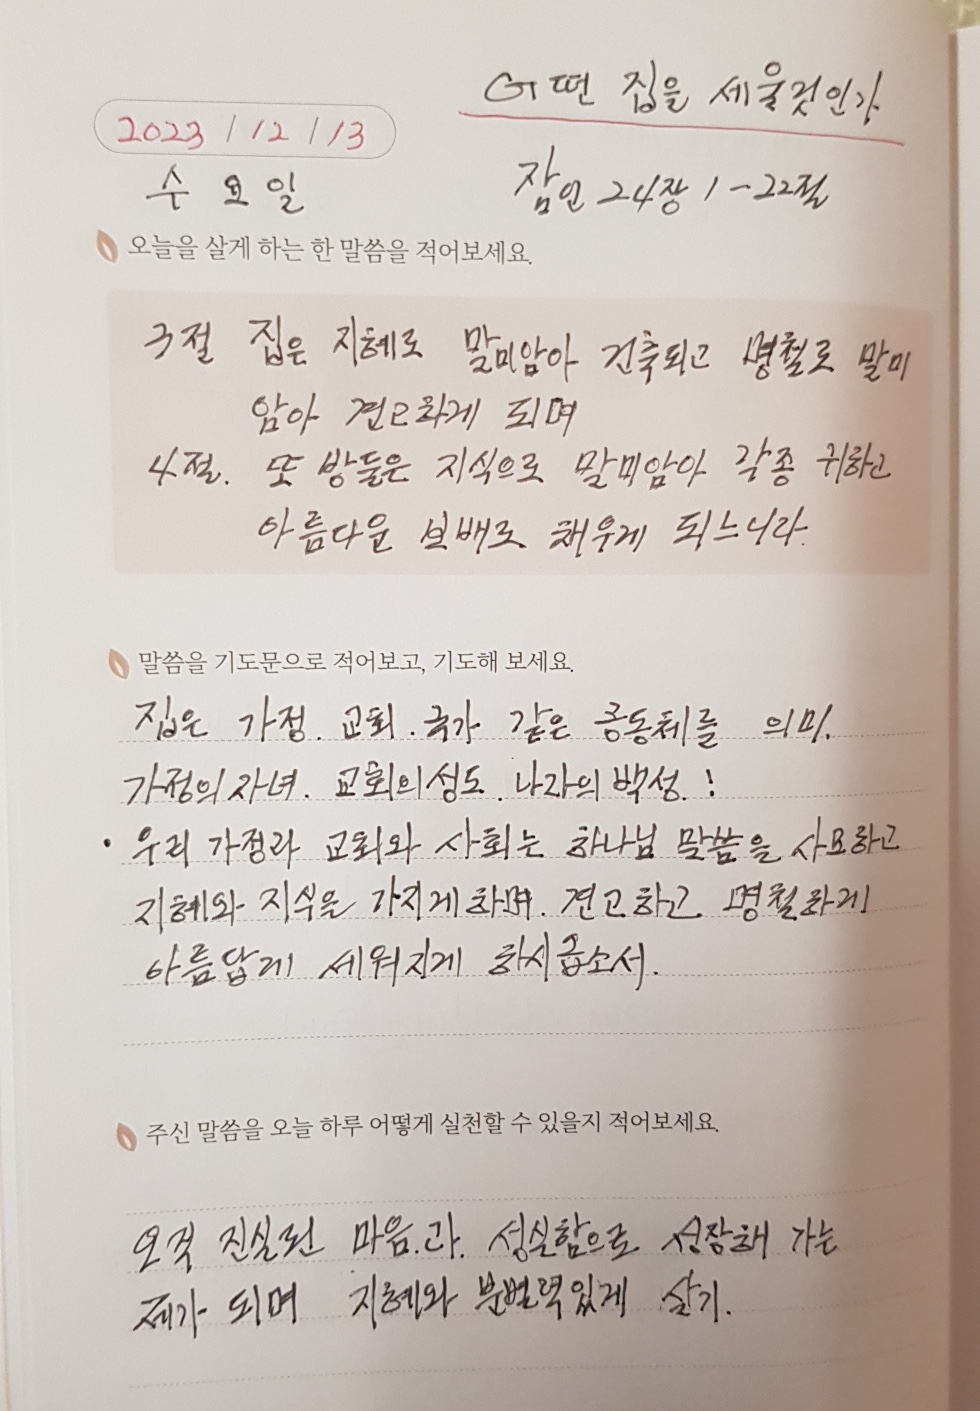 어떤 집을 세울것인가
2023 / 12 / 13
수요일
잠언 24장 1-22절
오늘을 살게 하는 한 말씀을 적어보세요.
3절 집은 지혜로 말미암아 건축되고 명철로 말미
암아 견고하게 되며
4절. 또 방들은 지식으로 말미암아 각종 귀하고
아름다운 보배로 채우게 되느니라.
말씀을 기도문으로 적어보고, 기도해 보세요.
집은 가정. 교회. 국가 같은 공동체를 의미.
가정의 자녀. 교회의 성도. 나라의 백성. !
• 우리 가정과 교회와 사회는 하나님 말씀을 사모하고
지혜와 지식을 가지게 하며. 견고하고 명철하게
아름답게 세워지게 하시옵소서.
주신 말씀을 오늘 하루 어떻게 실천할 수 있을지 적어보세요.
오직 진실된 마음.과. 성실함으로 성장해 가는
제가 되며 지혜와 분별력있게 살기.